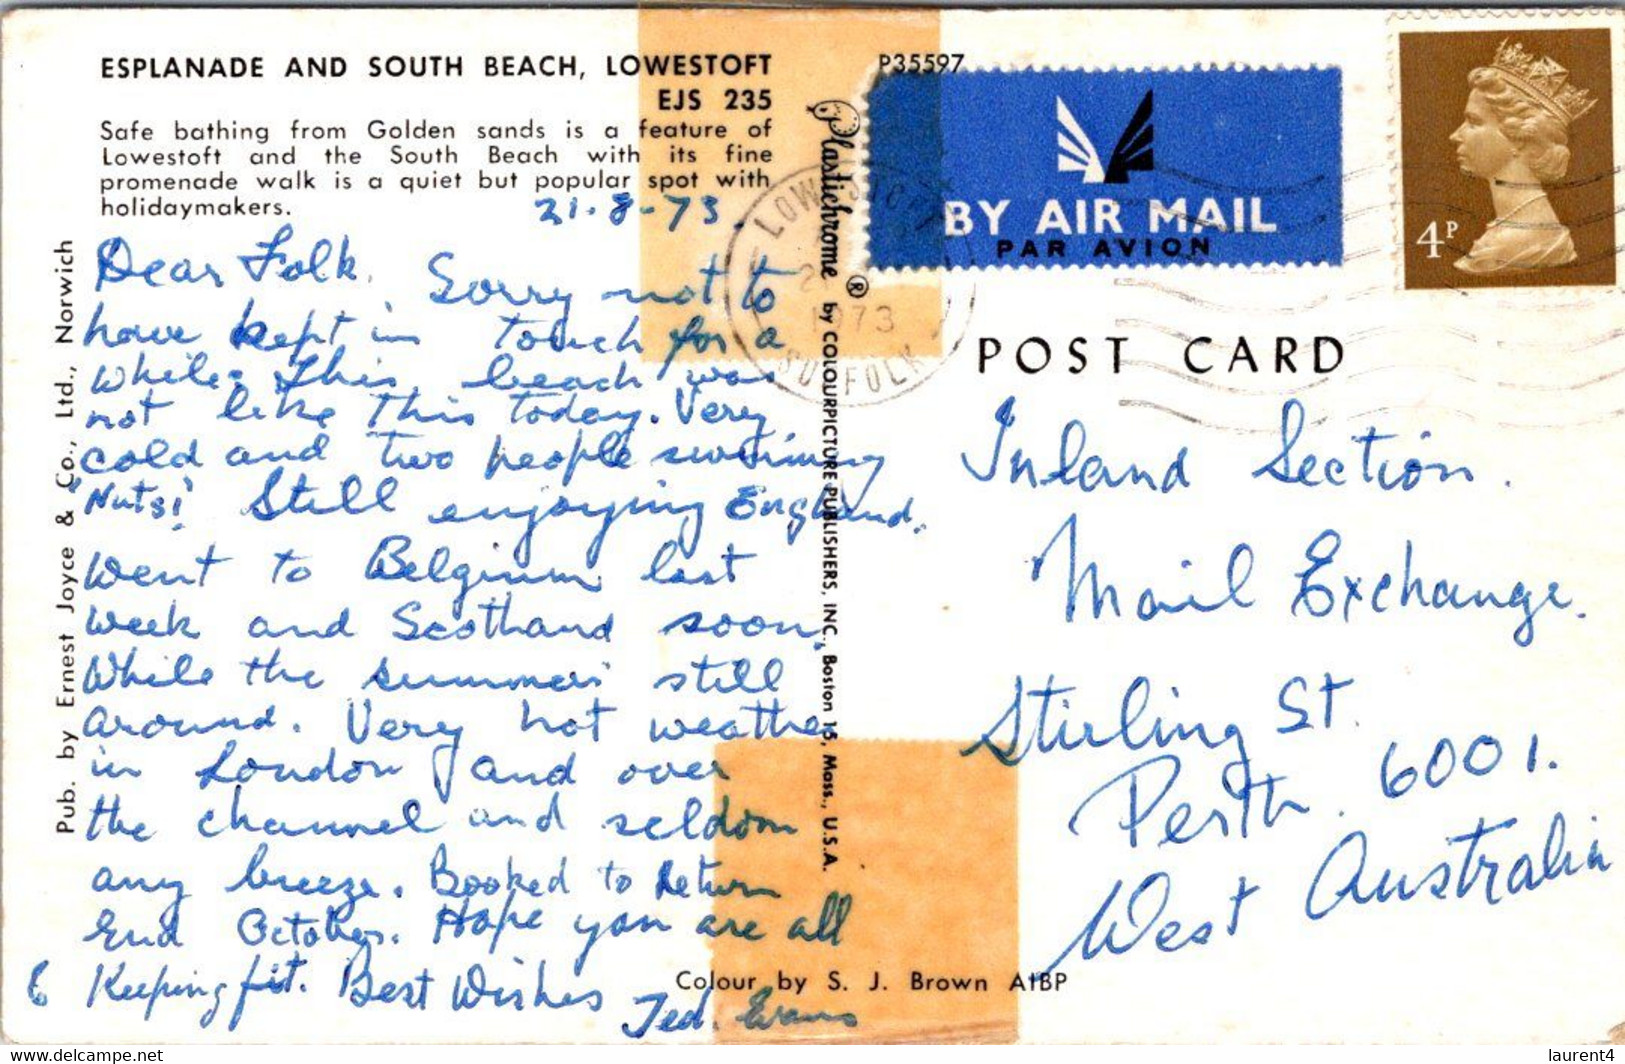 ESPLANADE AND SOUTH BEACH, LOWESTOFT
EJS 235
Safe bathing from Golden sands is a feature of
Lowestoft and the South Beach with its fine
promenade walk is a quiet but popular spot with
holidaymakers.
21-8-73.
Dear Folk. Sorry not to
have kept in touch for a
while. This beach was
not like this today. Very
cold and two people swimming
"Nuts! Still enjoying England.
Went to Belgium last
week and Scotland soon,
While the summer still
around. Very hot weather
in London and over
the channel and seldom
any breeze. Booked to Return
End October. Hope you are all
Keeping fit. Best Wishes
Ted. Evans
6
Pub. by Ernest Joyce & Co., Ltd., Norwich
Plastichrome ® by COLOURPICTURE PUBLISHERS, INC., Boston 15, Mass., U.S.A.
P35597
BY AIR MAIL
PAR AVION
4P
LOWESTOFT
1973
SUFFOLK
POST CARD
Inland Section.
Mail Exchange.
Stirling St.
Perth. 6001.
West Australia
Colour by S. J. Brown AIBP
www.delcampe.net
laurent4